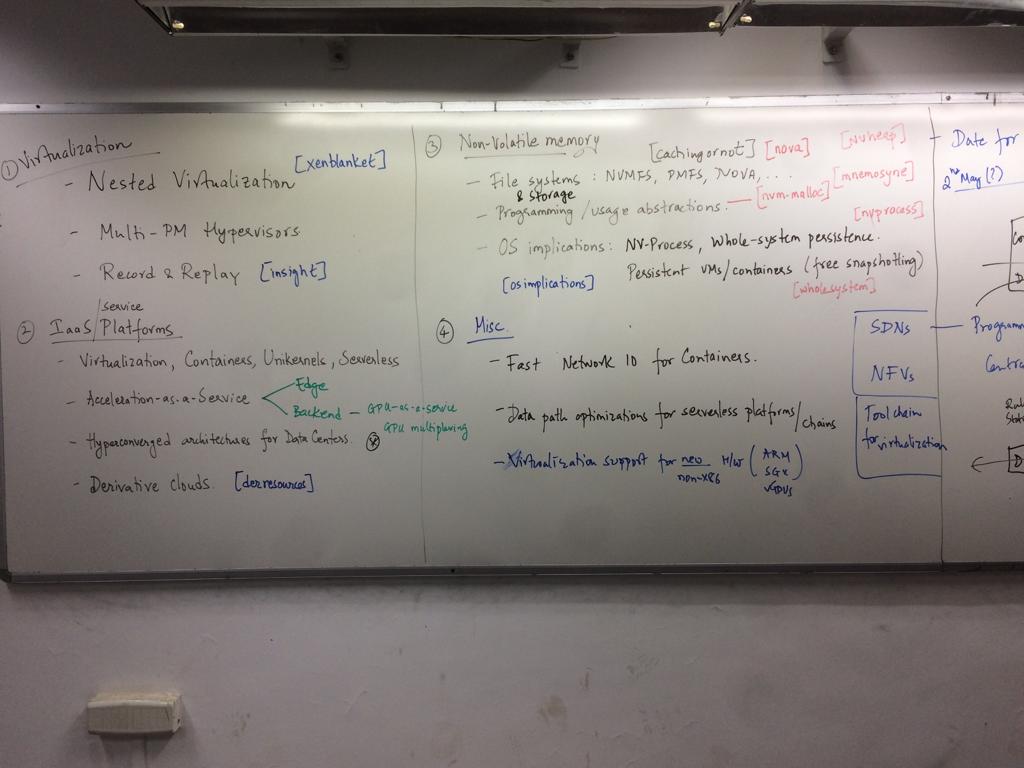 ① Virtualization
- Nested Virtualization [xenblanket]
- Multi-PM Hypervisors
- Record & Replay [insight]
② IaaS/Platforms /service
- Virtualization, Containers, Unikernels, Serverless
- Acceleration-as-a-Service
Edge
Backend - GPU-as-a-service
GPU multiplexing
- Hyperconverged architectures for Data Centers.
- Derivative clouds. [derresources]
③ Non-Volatile memory
[cachingornot] [nova] [nvheep]
- File systems : NVMFS, PMFS, NOVA, ... [mnemosyne]
& storage
- Programming/usage abstractions. — [nvm-malloc]
[nvprocess]
- OS implications: NV-Process, Whole-system persistence.
Persistent VMs/containers (free snapshotting)
[osimplications] [wholesystem]
④ Misc.
- Fast Network IO for Containers.
- Data path optimizations for serverless platforms/chains
- Virtualization support for neo H/W (ARM
non-x86 SGX
vGPUs)
SDNs
NFVs
Tool chain
for virtualization
- Date for
2nd May (?)